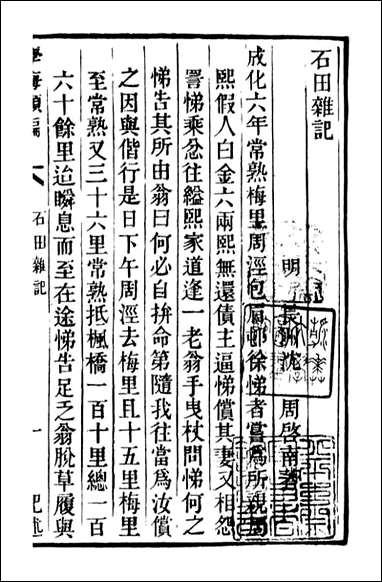 石田雜記
明 長洲沈 周啟南著
成化六年常熟梅里周涇包厢邨徐悌者嘗為所親周
熙假人白金六兩熙無還債主逼悌償其妻又相怨
詈悌乘忿往縊熙家道逢一老翁手曳杖問悌何之
悌告其所由翁曰何必自拚命第隨我往當為汝償
之因與偕行是日下午周涇去梅里且十五里梅里
至常熟又三十六里常熟抵楓橋一百十里總一百
六十餘里迨瞬息而至在途悌告足乏翁脫草履與
學海類編
石田雜記
一